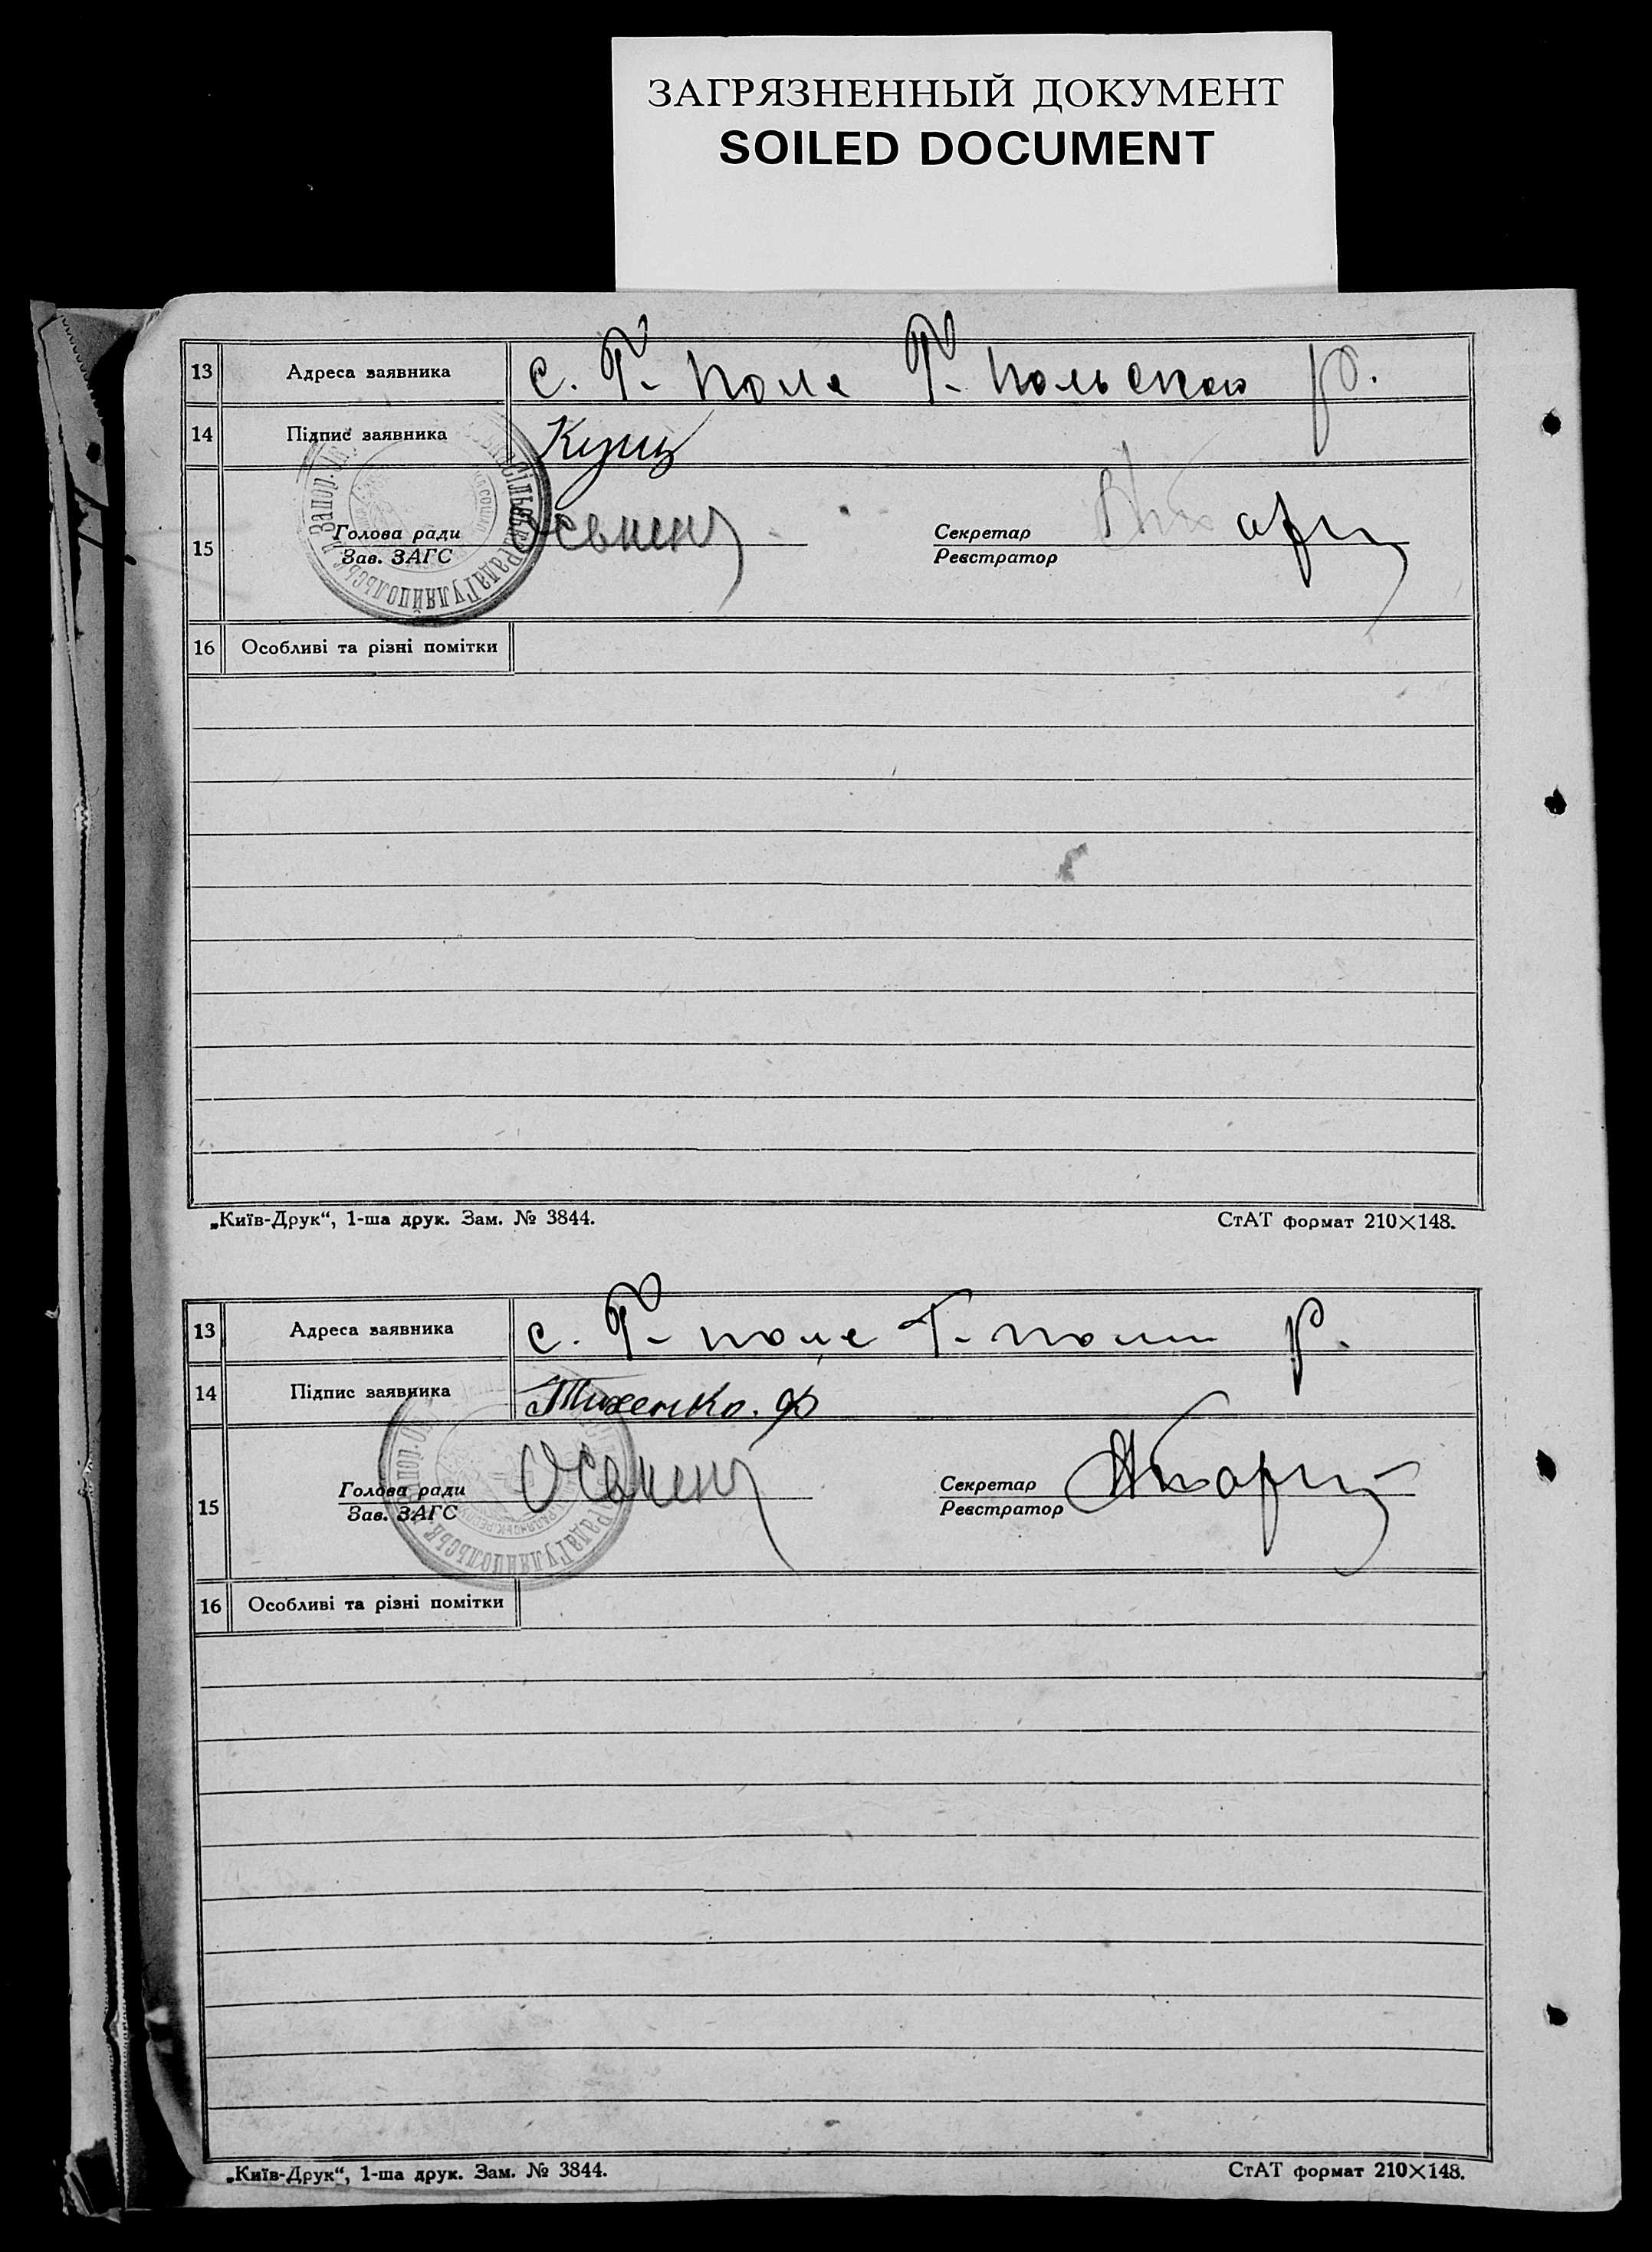 ЗАГРЯЗНЕННЫЙ ДОКУМЕНТ
SOILED DOCUMENT
13 Адреса заявника с. Г- Поле Г- Польского р.
14 Підпис заявника Кущ
Голова ради Секретар
15 Зав. ЗАГС Реєстратор
16 Особливі та різні помітки
„Київ-Друк“, 1-ша друк. Зам. № 3844. СтАТ формат 210×148.
13 Адреса заявника с. Г- поле Г- р.
14 Підпис заявника Тихенко. Ф
Голова ради Секретар
15 Зав. ЗАГС Реєстратор
16 Особливі та різні помітки
„Київ-Друк“, 1-ша друк. Зам. № 3844. СтАТ формат 210×148.